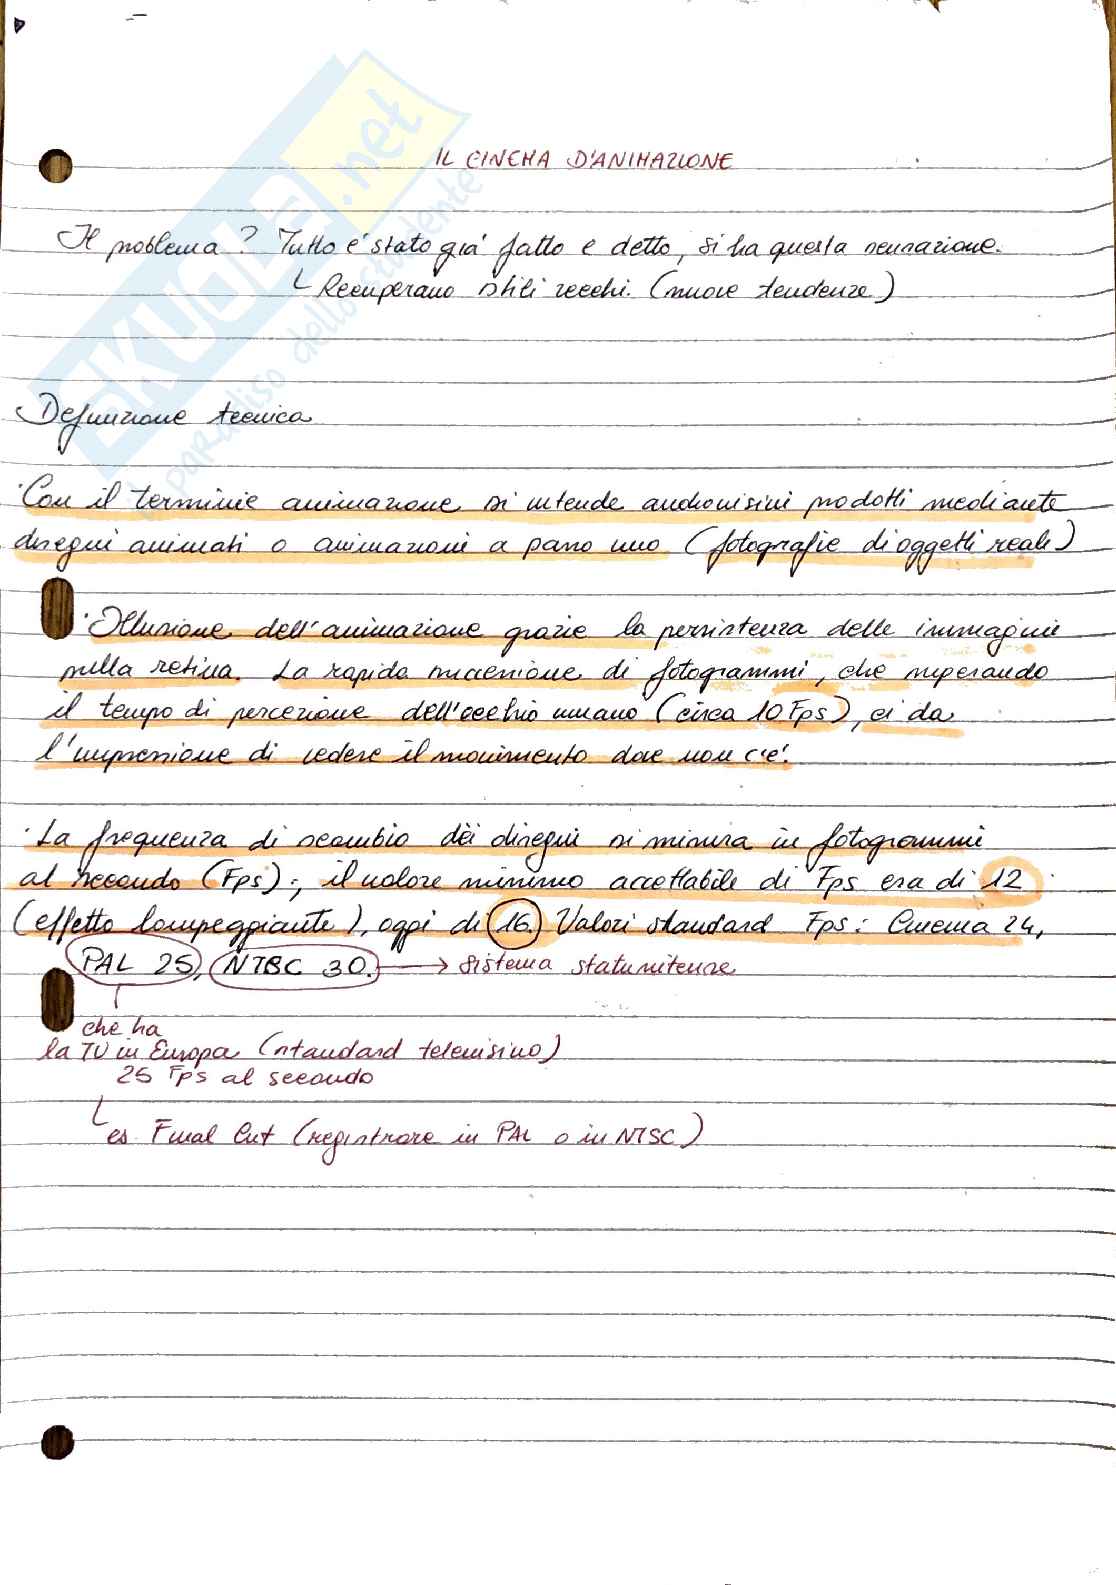 IL CINEMA D'ANIMAZIONE
Il problema? Tutto è stato già fatto e detto, si ha questa sensazione.
Recuperano stili vecchi. (nuove tendenze)
Definizione tecnica
Con il terminie animazione si intende audiovisivi prodotti mediante
disegni animati o animazioni a passo uno (fotografie di oggetti reali)
Illusione dell'animazione grazie la persistenza delle immagini
sulla retina. La rapida successione di fotogrammi, che superando
il tempo di percezione dell'occhio umano (circa 10 Fps), ci da
l'impressione di vedere il movimento dove non c'è.
La frequenza di scambio dei disegni si misura in fotogrammi
al secondo (Fps); il valore minimo accettabile di Fps era di 12
(effetto lampeggiante), oggi di 16. Valori standard Fps: Cinema 24,
PAL 25, NTSC 30. → sistema statunitense
che ha
la TV in Europa (standard televisivo)
25 Fps al secondo
es. Final Cut (registrare in PAL o in NTSC)
SKUOLA.net
il paradiso dello studente